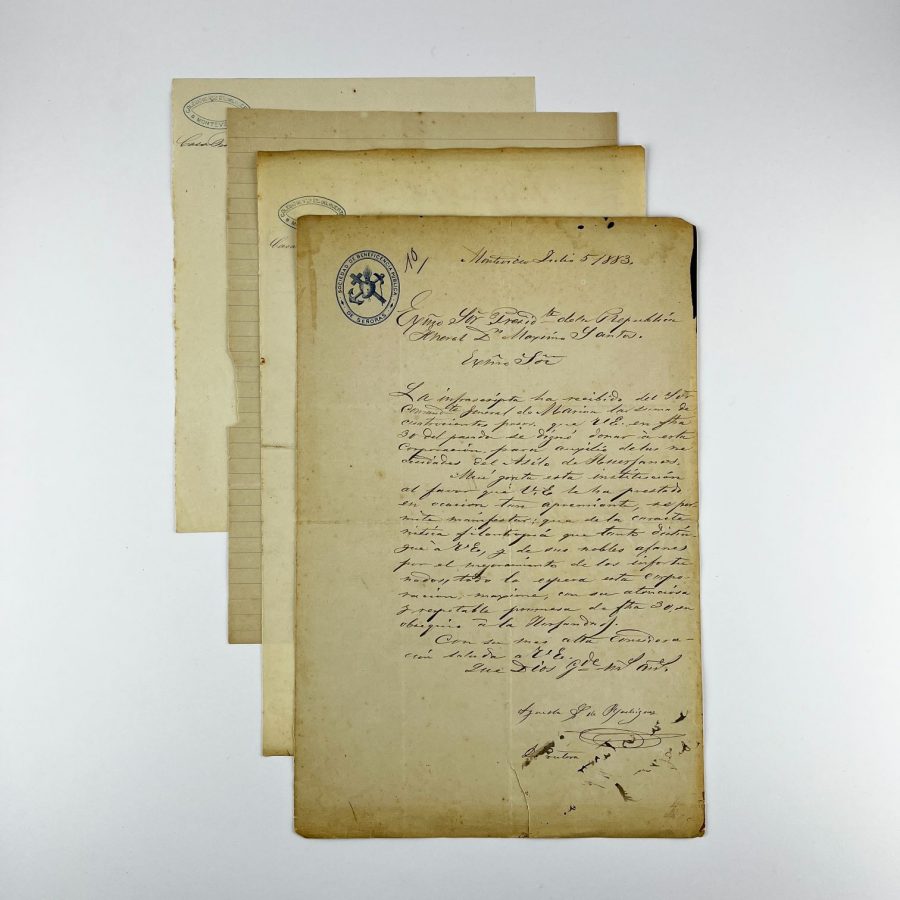 MONTEV
Casa
Casa
SOCIEDAD DE BENEFICENCIA PUBLICA
DE SEÑORAS
10/
Montevideo Julio 5/883.
Exmo Sõr Presidte de la República
General Dn Maximo Santos.
Exmo Sõr
La infrascripta ha recibido del Sõr
Comandte General de Marina la suma de
cuatrocientos pesos, que V.E. en fha
30 del pasado se dignó donar à esta
corporacion para auxilio de las ne
cesidades del Asilo de Huerfanos.
Muy grata esta institucion
al favor que V.E le ha prestado
en ocacion tan apremiante, se per
mite manifestar; que de la caracte
ristica filantropia que tanto distin
gue à V.E, y de sus nobles afanes
por el mejoramiento de los infortu
nados, todo lo espera esta corpo-
racion, maxime, con su atenciosa
y respetable promesa de fha 30, en
obsequio à la Horfandad.
Con su mas alta considera-
cion saluda a V.E.
Que Dios gde ms ans.
de Rodriguez